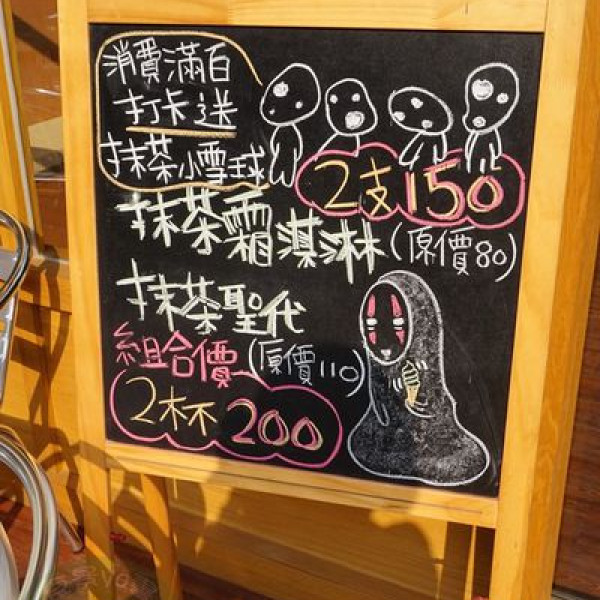 消費滿百
打卡送
抹茶小雪球
2支150
抹茶霜淇淋(原價80)
抹茶聖代
組合價(原價110)
2杯200